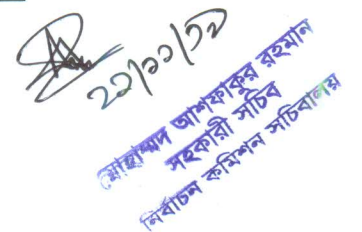 ২১/১১/১৯
মোহাম্মদ আশফাকুর রহমান
সহকারী সচিব
নির্বাচন কমিশন সচিবালয়